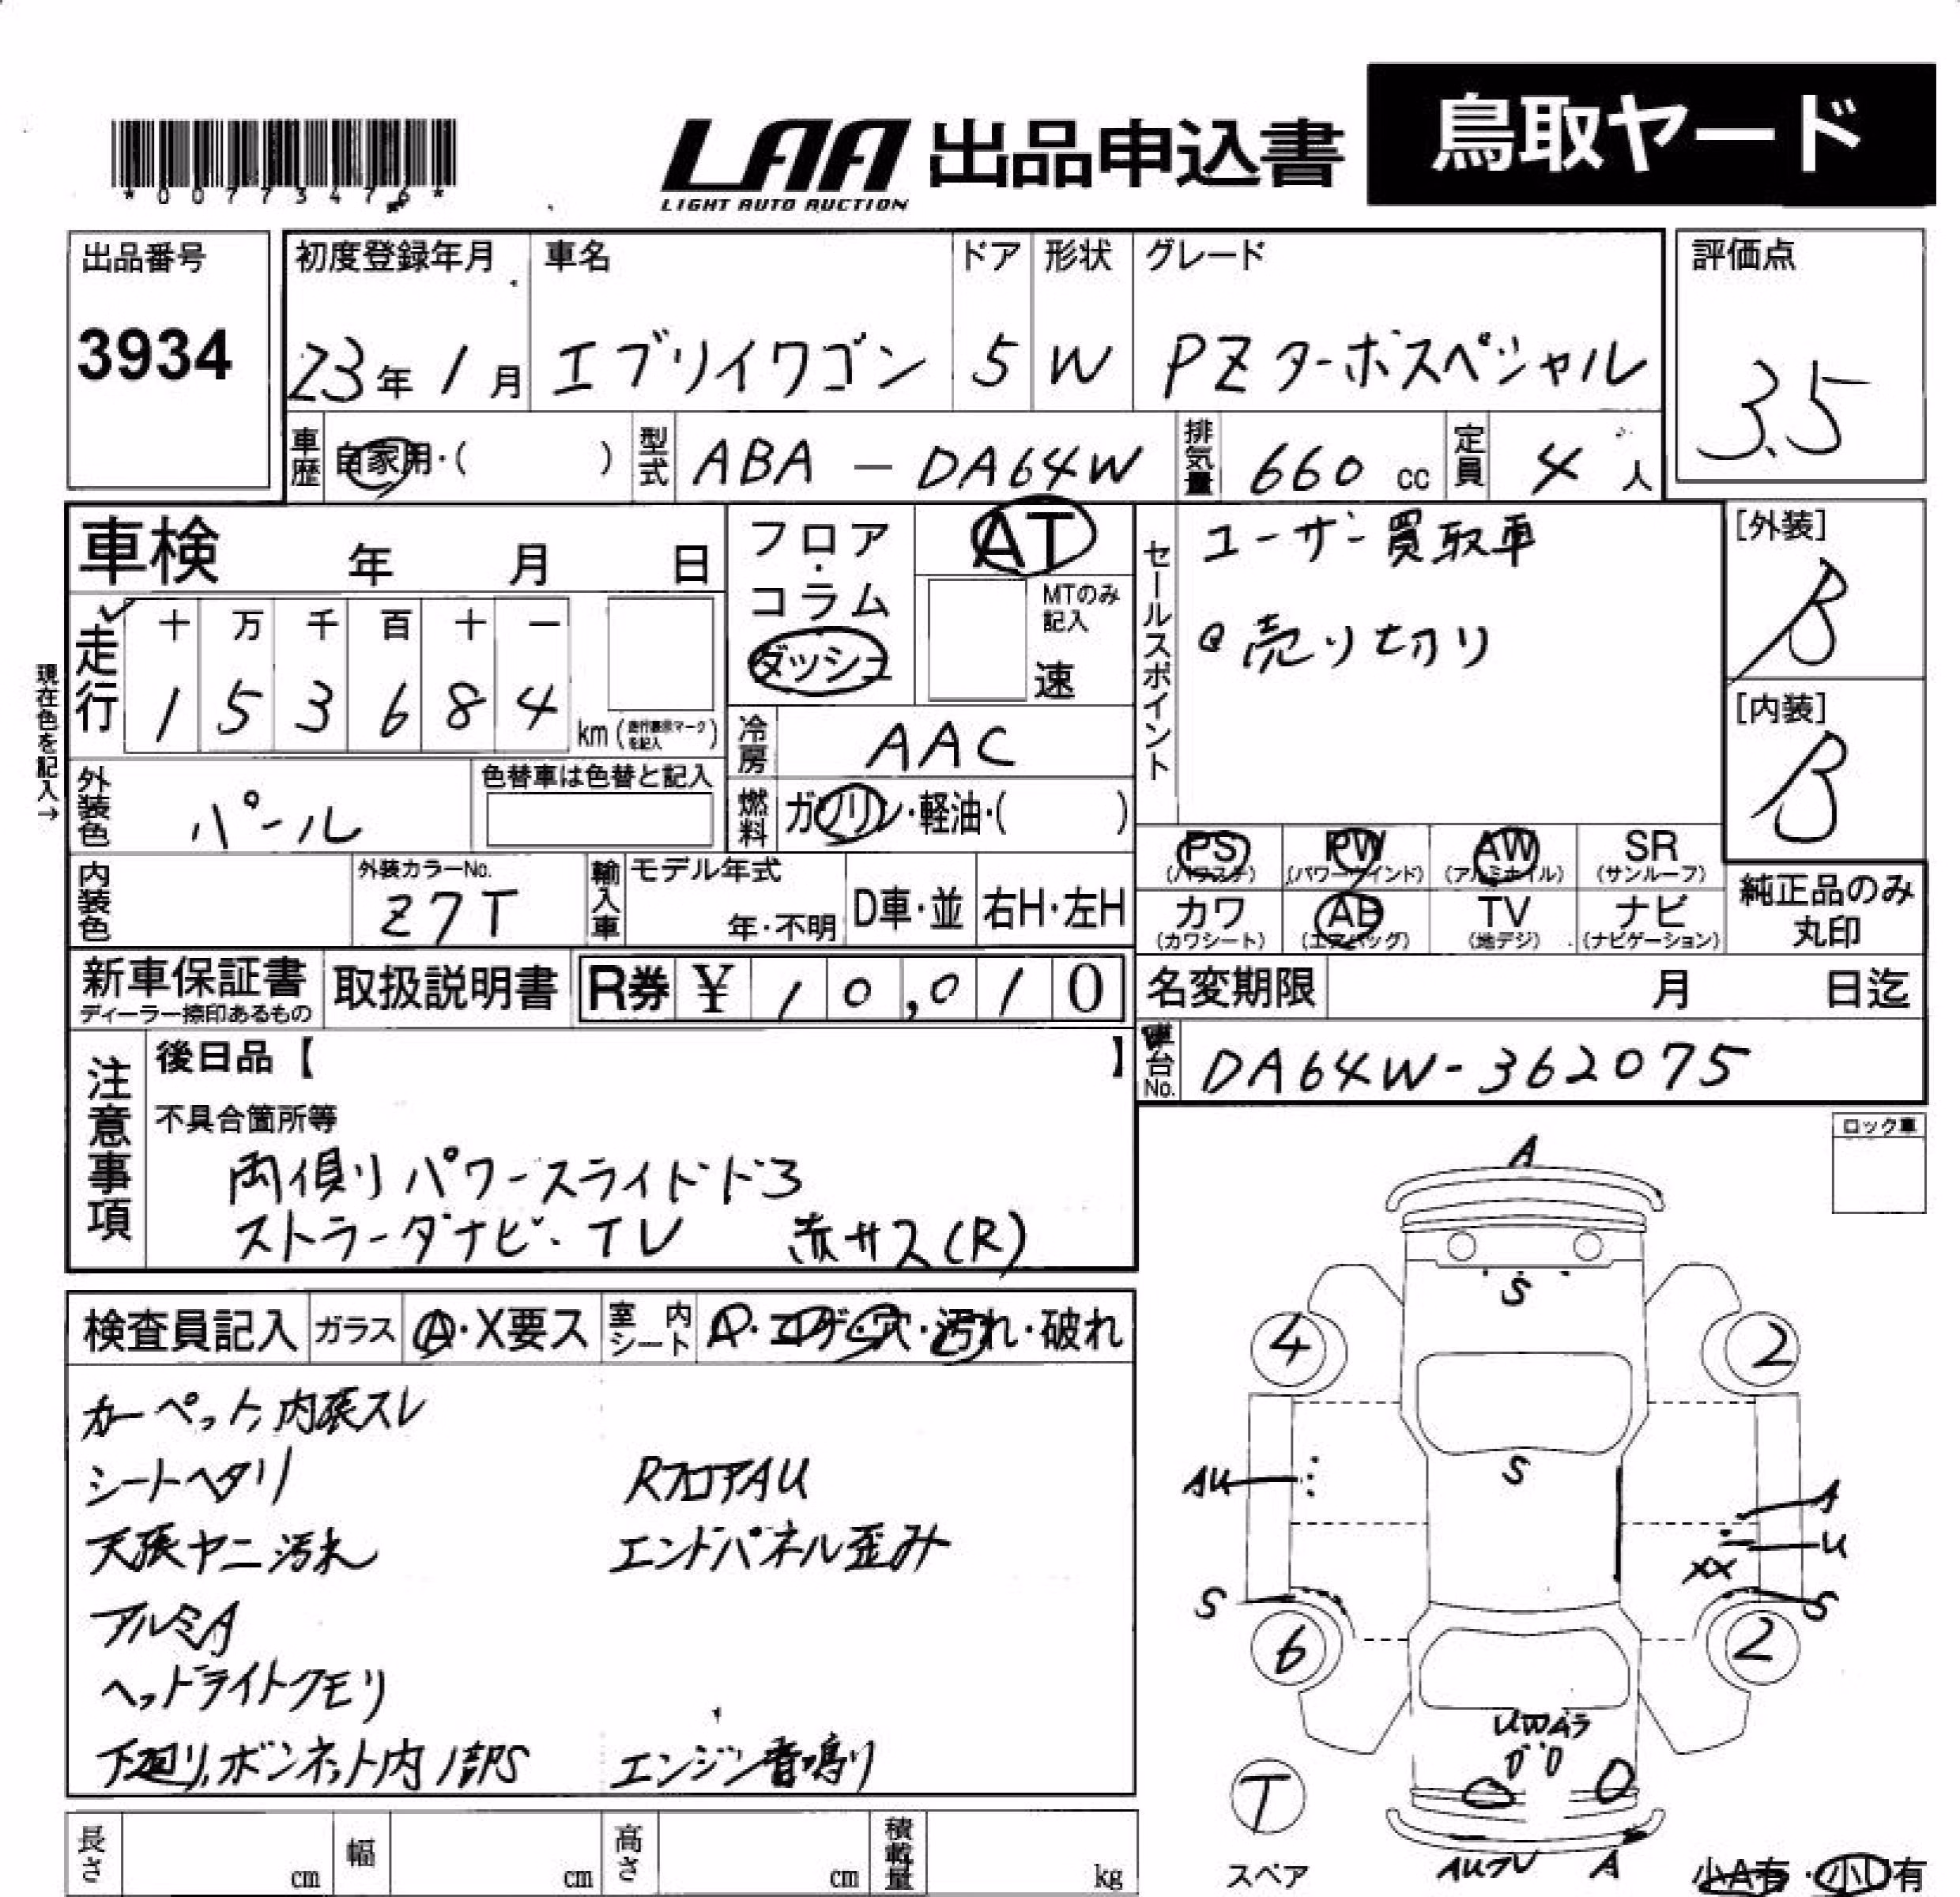 *00773476*
LAA 出品申込書 鳥取ヤード
LIGHT AUTO AUCTION
出品番号 初度登録年月 車名 ドア 形状 グレード 評価点
3934 23年1月 エブリイワゴン 5 W PZターボスペシャル 3.5
車歴 自家用・( ) 型式 ABA-DA64W 排気量 660 cc 定員 4 人
車検 年 月 日
フロア・コラム
ダッシュ
AT
MTのみ記入
速
セールスポイント
ユーザー買取車
売り切り
[外装]
B
[内装]
B
現在色を記入→
走行 十 万 千 百 十 一
1 5 3 6 8 4 km
冷房 AAC
外装色 パール 色替車は色替と記入
燃料 ガソリン・軽油・( )
内装色 外装カラーNo. Z7T 輸入車 モデル年式 年・不明 D車・並 右H・左H
PS PW AW SR
(パワステ) (パワーウインド) (アルミホイル) (サンルーフ)
カワ AB TV ナビ
(カワシート) (エアバッグ) (地デジ) (ナビゲーション)
純正品のみ
丸印
新車保証書 取扱説明書 R券 ¥ 10,010
ディーラー捺印あるもの
名変期限 月 日迄
車台No. DA64W-362075
注意事項
後日品【 】
不具合箇所等
両側パワースライドドア
ストラーダナビ・TV 赤サス(R)
ロック車
検査員記入 ガラス A・X要ス 室内シート A・コゲ・穴・汚れ・破れ
カーペット,内張スレ
シートヘタリ RフロアAU
天張ヤニ汚れ エンドパネル歪み
アルミA
ヘッドライトクモリ
下廻り,ボンネット内1部S エンジン音鳴り
A
S
4 2
S
AU A
U
XX
S S
6 2
T
スペア
A
小A有・小U有
長さ cm 幅 cm 高さ cm 積載量 kg